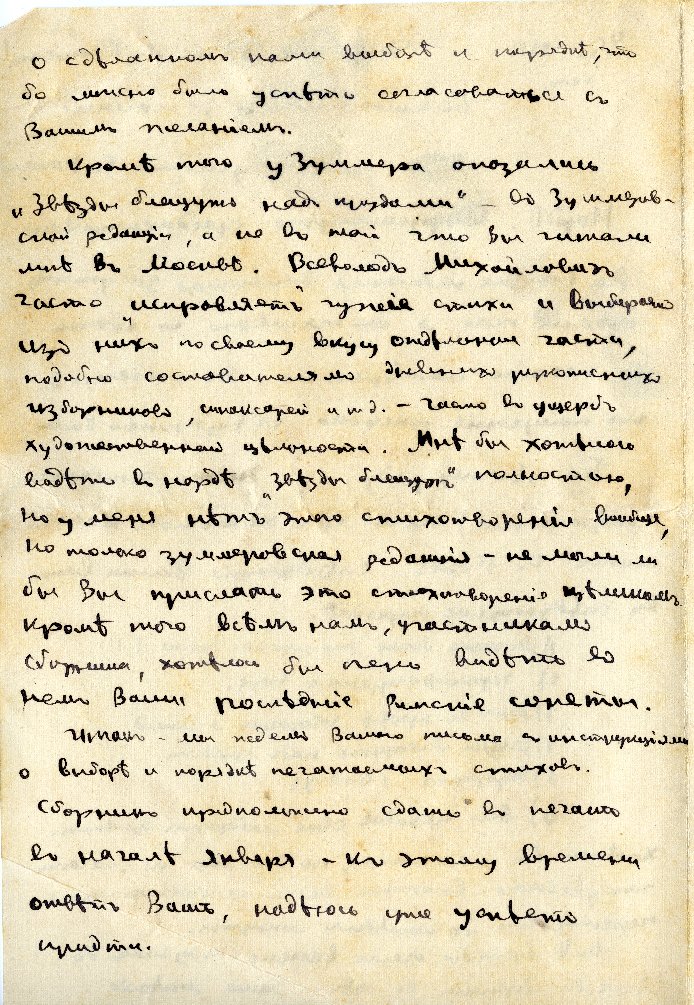 о сдѣланномъ нами выборѣ и порядкѣ, что
бо можно было успѣть согласоваться съ
Вашимъ желаніемъ.
Кромѣ того у Зуммера оказались
„Звѣзды блещутъ надъ прудами“ – въ Зуммеров-
ской редакціи, а не въ той что Вы читали
мнѣ въ Москвѣ. Всеволодъ Михайловичъ
часто „исправляетъ“ чужіе стихи и выбираетъ
изъ нихъ по своему вкусу отдѣльныя части,
подобно составителямъ древнихъ рукописныхъ
изборниковъ, синаксарей и т.д. – часто въ ущербъ
художественной цѣльности. Мнѣ бы хотѣлось
видѣть въ Нордѣ „Звѣзды блещутъ“ полностью,
но у меня нѣтъ этого стихотворенія вообще,
но только зуммеровская редакція – не могли ли
бы Вы прислать это стихотвореніе цѣликомъ.
Кромѣ того всѣмъ намъ, участникамъ
сборника, хотѣлось бы очень видѣть въ
немъ Ваши послѣдніе Римскіе сонеты.
Итакъ – мы ждемъ Вашего письма съ инструкціями
о выборѣ и порядкѣ печатаемыхъ стиховъ.
Сборникъ предположено сдать въ печать
въ началѣ января – къ этому времени
отвѣтъ Вашъ, надѣюсь уже успѣетъ
придти.